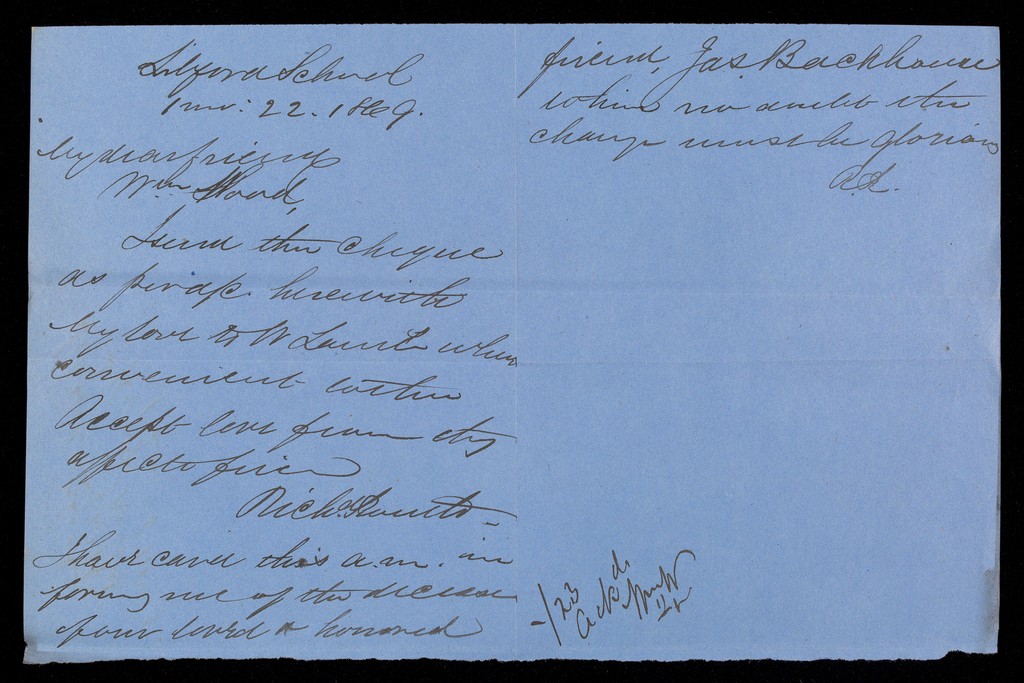 Sibford School
1 mo: 22. 1869.
My dear friend
Wm Wood,
I send thee cheque
as per a/c. herewith
My love to W when
convenient to thee
Accept love from thy
affecte friend
Richd
I have card this a.m. in
forming me of the decease
of our lov'd & honored
friend, Jas. Backhouse
to him no doubt the
change must be glorious
-/23
Ackd.